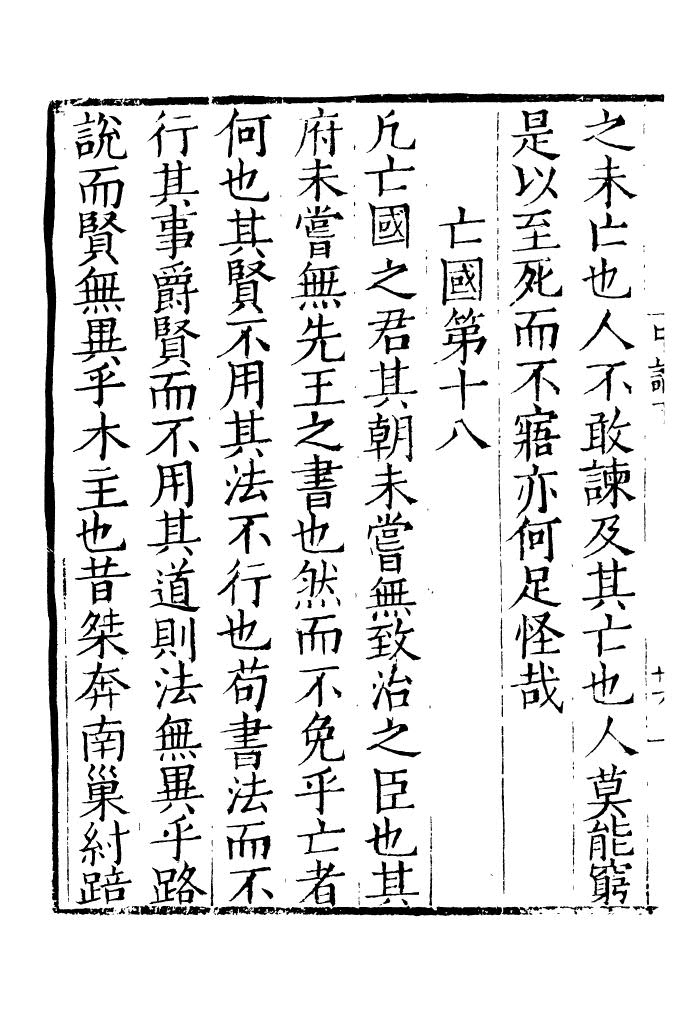 之未亡也人不敢諫及其亡也人莫能窮
是以至死而不寤亦何足怪哉
亡國第十八
凡亡國之君其朝未嘗無致治之臣也其
府未嘗無先王之書也然而不免乎亡者
何也其賢不用其法不行也苟書法而不
行其事爵賢而不用其道則法無異乎路
說而賢無異乎木主也昔桀奔南巢紂踣